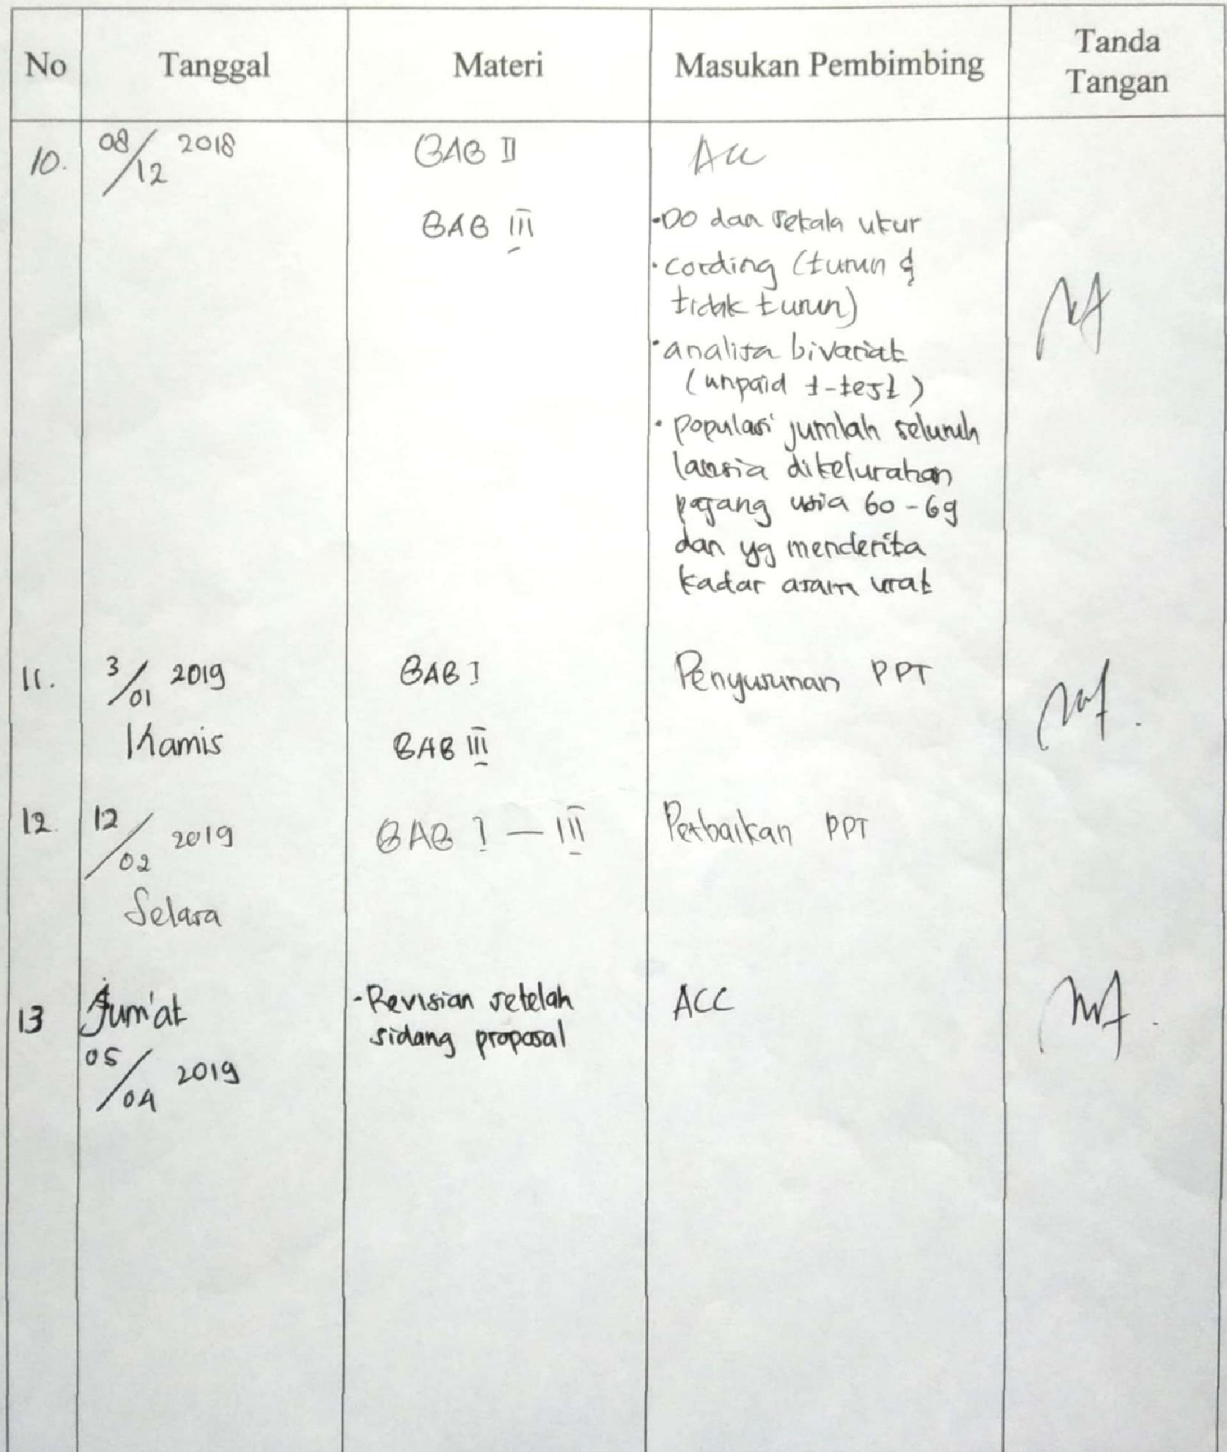 No Tanggal Materi Masukan Pembimbing Tanda Tangan
10. 08/12 2018 BAB II ACC
BAB III •DO dan sekala ukur
•cording (turun &
tidak turun)
•analisa bivariat
(unpaid t-test)
•populasi jumlah seluruh
lansia dikelurahan
pajang usia 60-69
dan yg menderita
kadar asam urat
11. 3/01 2019 BAB I Penyusunan PPT
Kamis BAB III
12. 12/02 2019 BAB I — III Perbaikan PPT
Selasa
13 Jum'at -Revisian setelah ACC
sidang proposal
05/04 2019